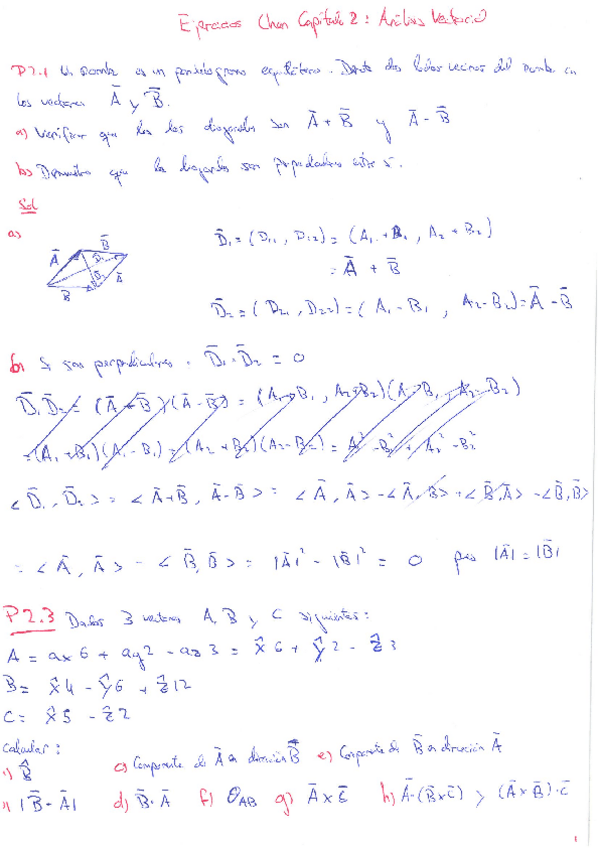 Ejercicios Chen Capítulo 2: Análisis Vectorial
P2.1 Un rombo es un paralelogramo equilátero. Denote dos lados vecinos del rombo con
los vectores Ā y B̄.
a) Verificar que las dos diagonales son Ā + B̄ y Ā - B̄
b) Demuestra que las diagonales son perpendiculares entre sí.
Sol
a)
Ā B̄ D₁ D₂ B Ā
D̄₁ = (D₁₁, D₁₂) = (A₁ + B₁, A₂ + B₂)
= Ā + B̄
D̄₂ = (D₂₁, D₂₂) = (A₁ - B₁, A₂ - B₂) = Ā - B̄
b) Si son perpendiculares. D̄₁·D̄₂ = 0
D̄₁·D̄₂ = (Ā + B̄)(Ā - B̄) = (A₁ + B₁, A₂ + B₂)(A₁ - B₁, A₂ - B₂)
= (A₁ + B₁)(A₁ - B₁) = (A₂ + B₂)(A₂ - B₂) = A₁² - B₁² + A₂² - B₂²
< D̄₁, D̄₂ > = < Ā + B̄, Ā - B̄ > = < Ā, Ā > - < Ā, B̄ > + < B̄, Ā > - < B̄, B̄ >
= < Ā, Ā > - < B̄, B̄ > = |Ā|² - |B̄|² = 0 |Ā| = |B̄|
P2.3 Dados 3 vectores A, B y C siguientes:
A = ax 6 + ay 2 - az 3 = x̂ 6 + ŷ 2 - ẑ 3
B = x̂ 4 - ŷ 6 + ẑ 12
C = x̂ 5 - ẑ 2
Calcular:
B̂ c) Componente de Ā en dirección B̄ e) Componente de B̄ en dirección Ā
|B̄ - Ā| d) B̄·Ā f) θAB g) Ā x C̄ h) Ā·(B̄ x C̄) y (Ā x B̄)·C̄
1